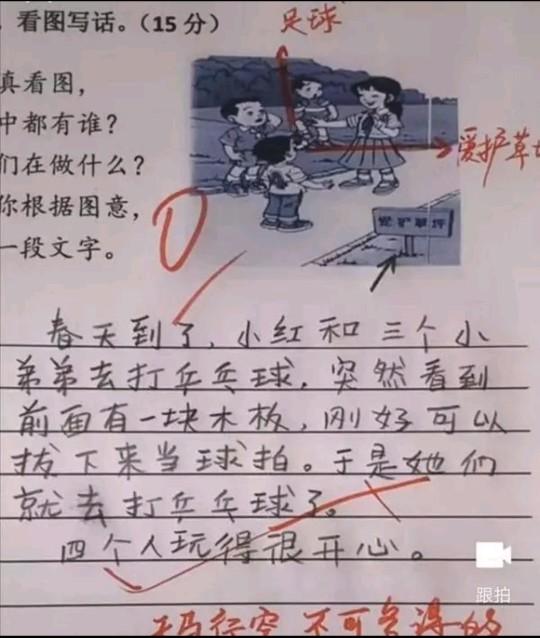 看图写话。(15分)
足球
真看图,
中都有谁?
们在做什么?
你根据图意,
一段文字。
爱护草
爱护草坪
春天到了,小红和三个小
弟弟去打乒乓球,突然看到
前面有一块木板,刚好可以
拔下来当球拍。于是她们
就去打乒乓球了。
四个人玩得很开心。
跟拍
马行空 不可多得的